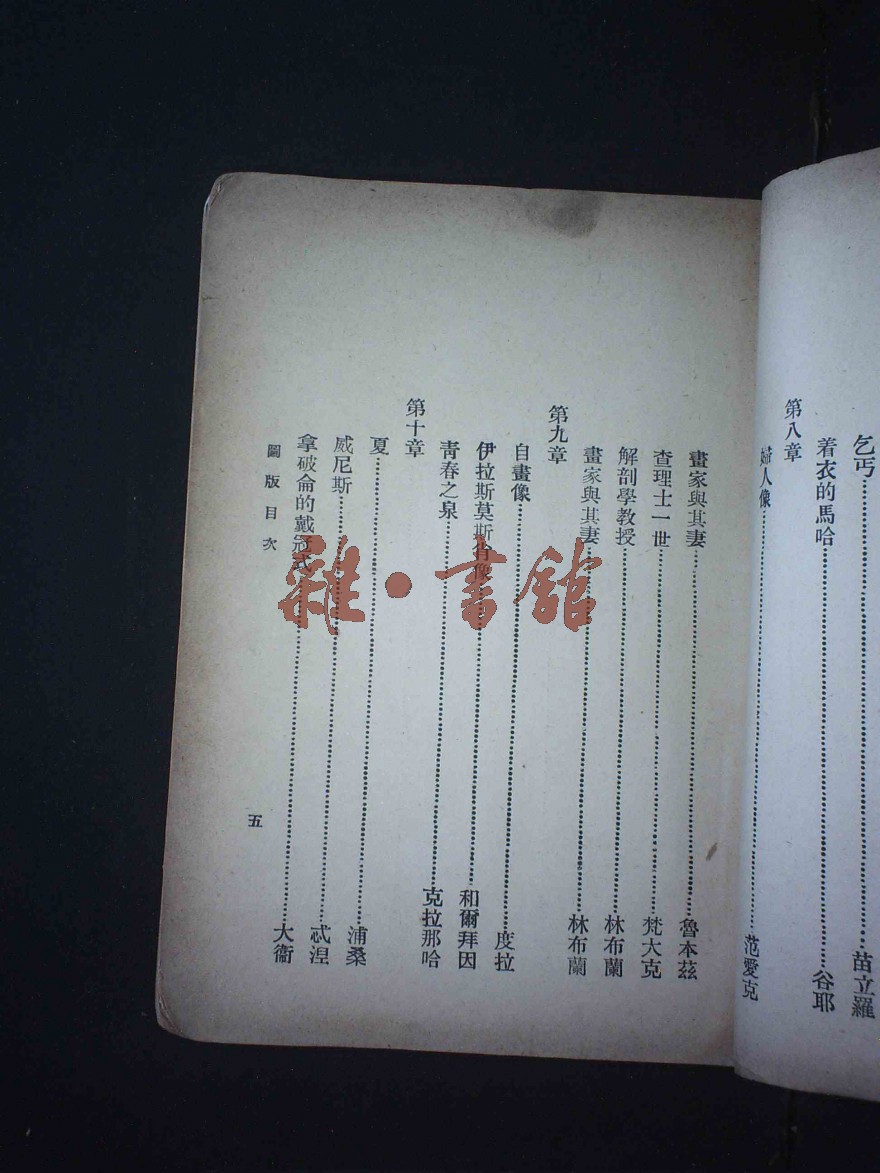 乞丐……苗立羅
着衣的馬哈……谷耶
第八章
婦人像……范愛克
畫家與其妻……魯本茲
查理士一世……梵大克
解剖學教授……林布蘭
畫家與其妻……林布蘭
第九章
自畫像……度拉
伊拉斯莫斯肖像……和爾拜因
靑春之泉……克拉那哈
第十章
夏……浦桑
威尼斯……忒涅
拿破侖的戴冠式……大衞
圖版目次
五
雜·書館